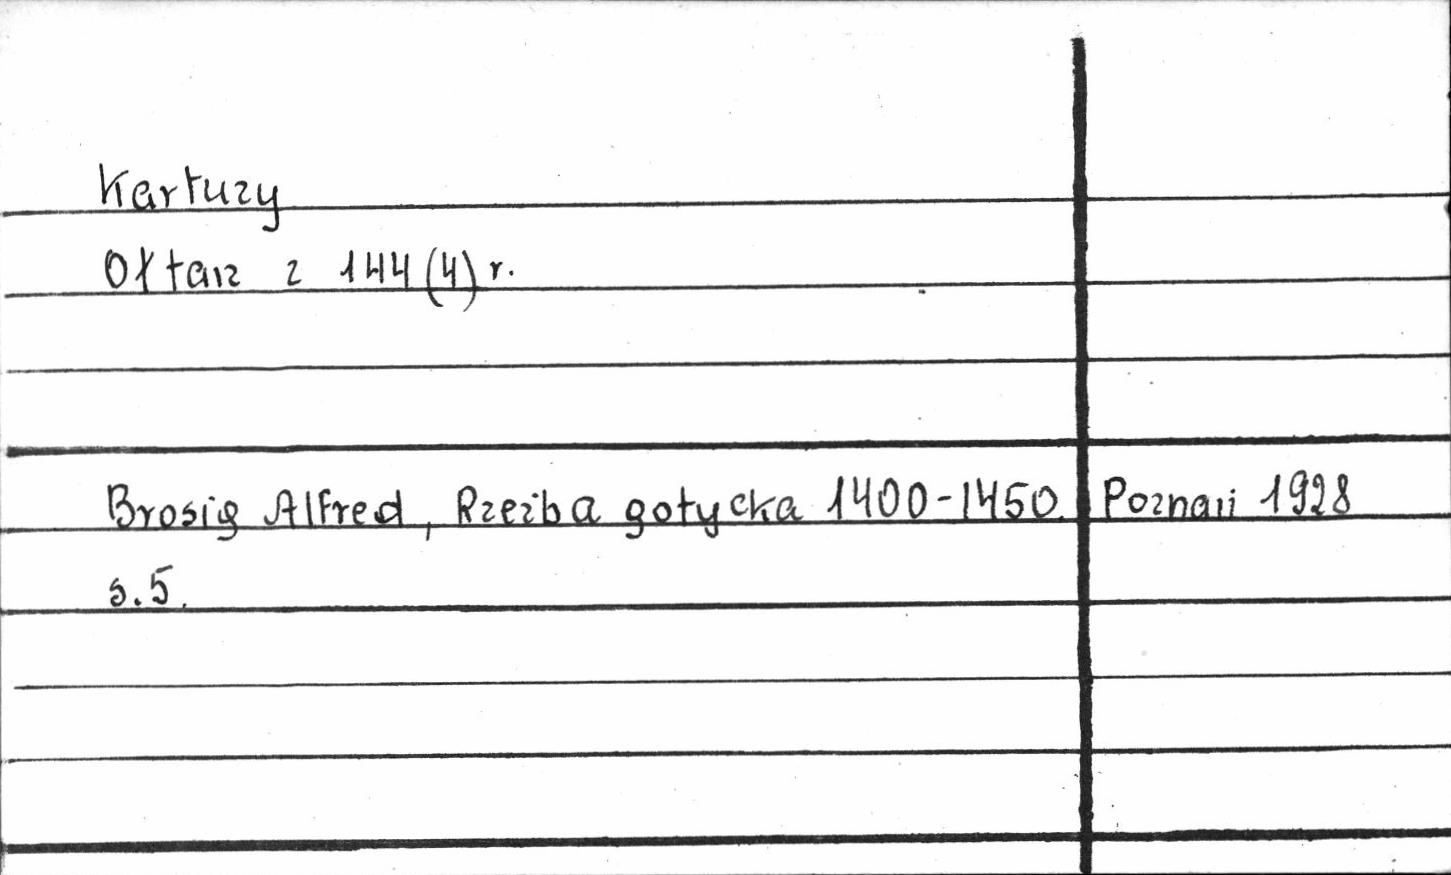 Kartuzy
Ołtarz z 144(4) r.
Brosig Alfred, Rzeźba gotycka 1400-1450. Poznań 1928
s.5.